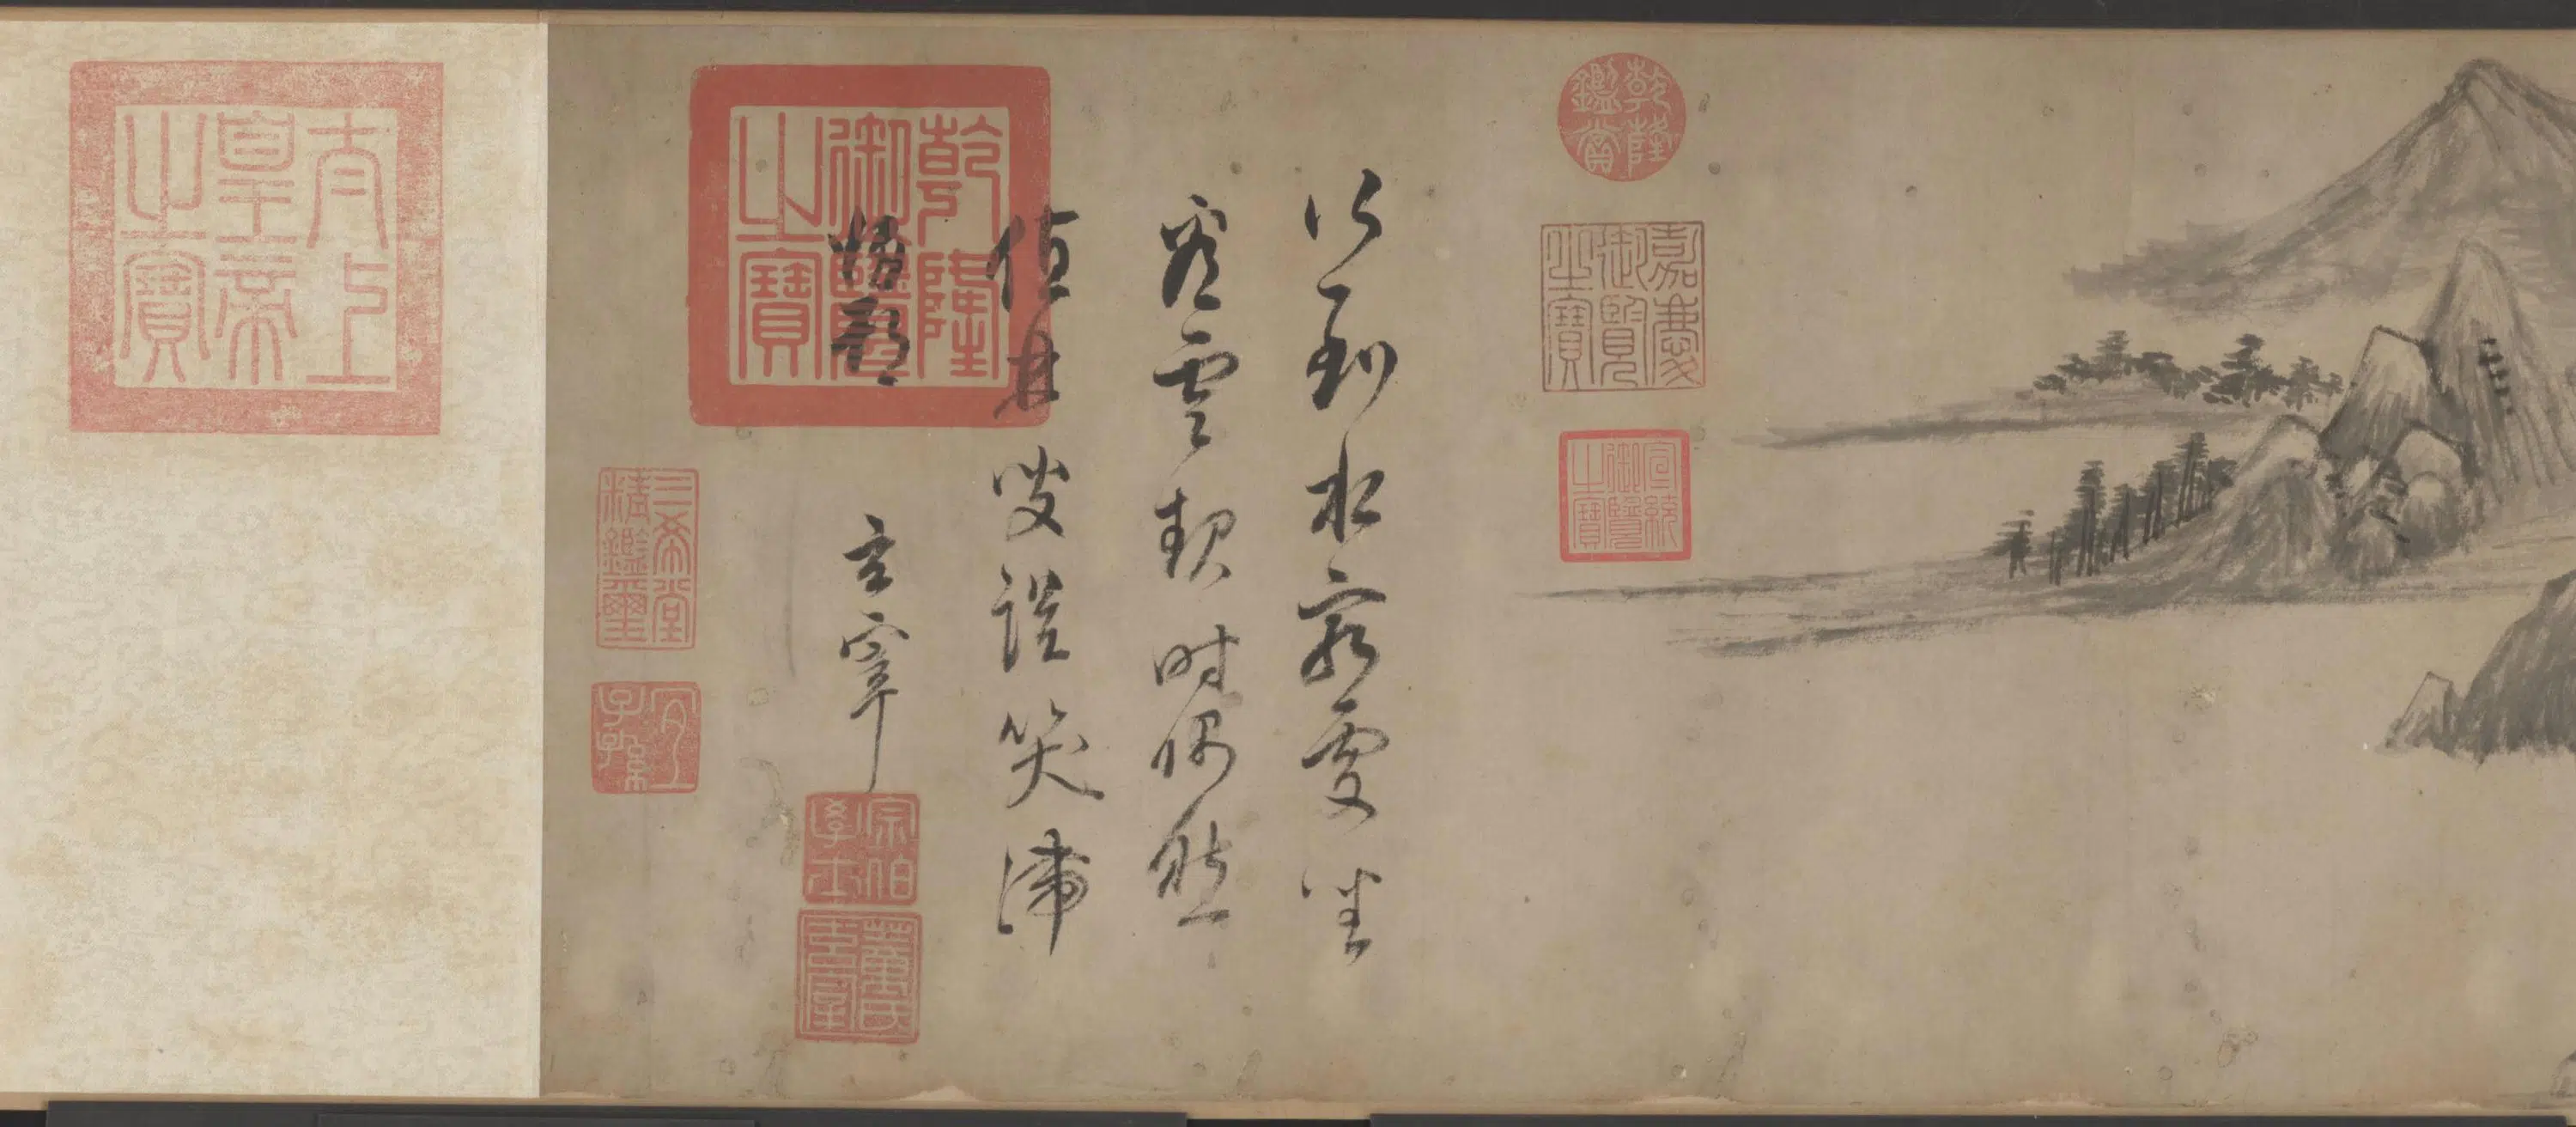 乾隆鑑賞
嘉慶御覽之寶
宣統御覽之寶
行到水窮處坐
看雲起時偶然
值林叟談笑滯
歸期 玄宰
乾隆御覽之寶
宗伯學士
董氏玄宰
三希堂精鑑璽
宜子孫
太上皇帝之寶